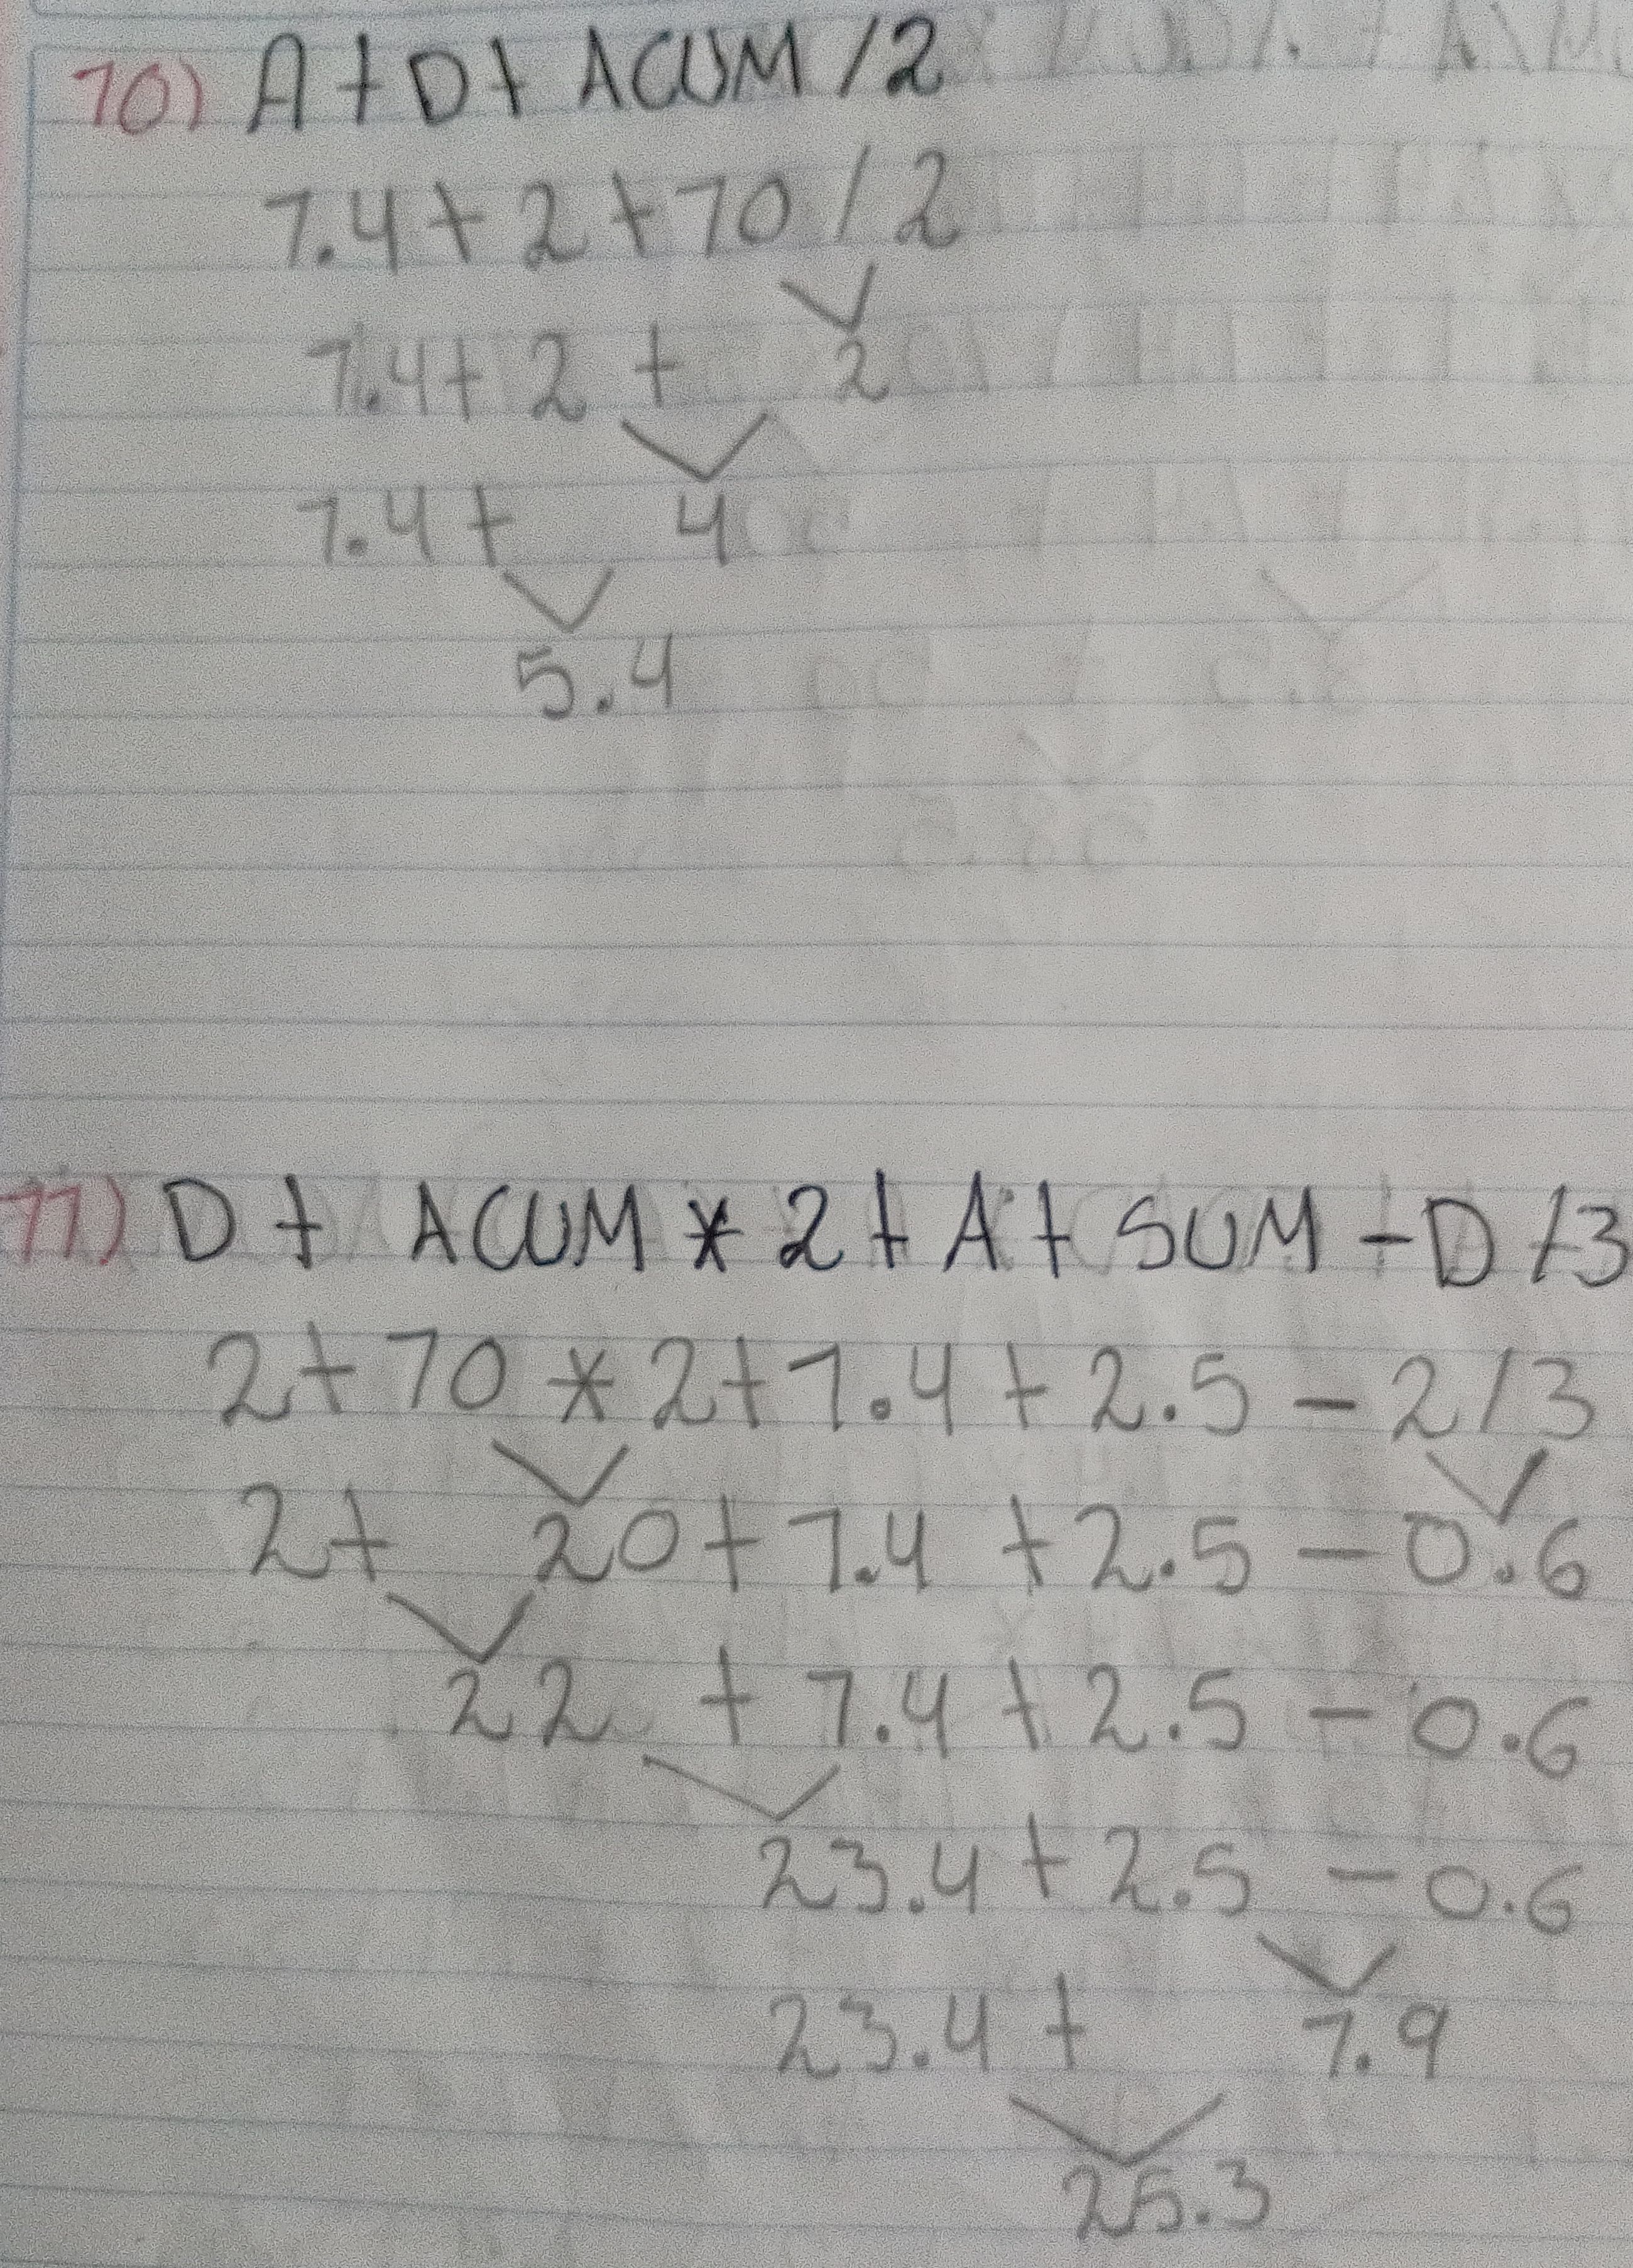 10) A + D + ACUM / 2
1.4 + 2 + 10 / 2
1.4 + 2 + 2
1.4 + 4
5.4
11) D + ACUM * 2 + A + SUM - D / 3
2 + 10 * 2 + 1.4 + 2.5 - 2 / 3
2 + 20 + 1.4 + 2.5 - 0.6
22 + 1.4 + 2.5 - 0.6
23.4 + 2.5 - 0.6
23.4 + 1.9
25.3